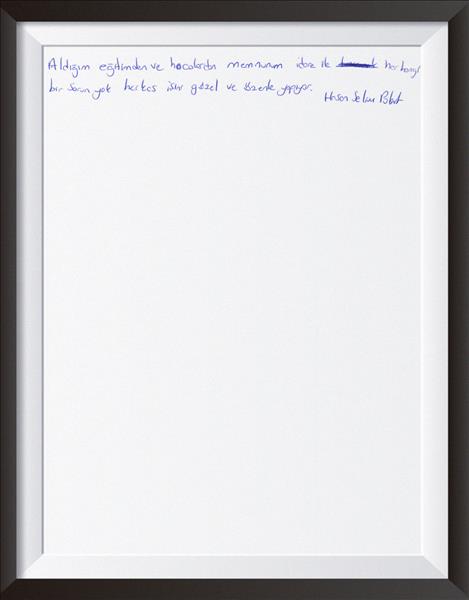 Aldığım eğitimden ve hocalardan memnunum idare ile herhangi
bir sorun yok herkes işini güzel ve özenle yapıyor.
Hasan Selim Polat